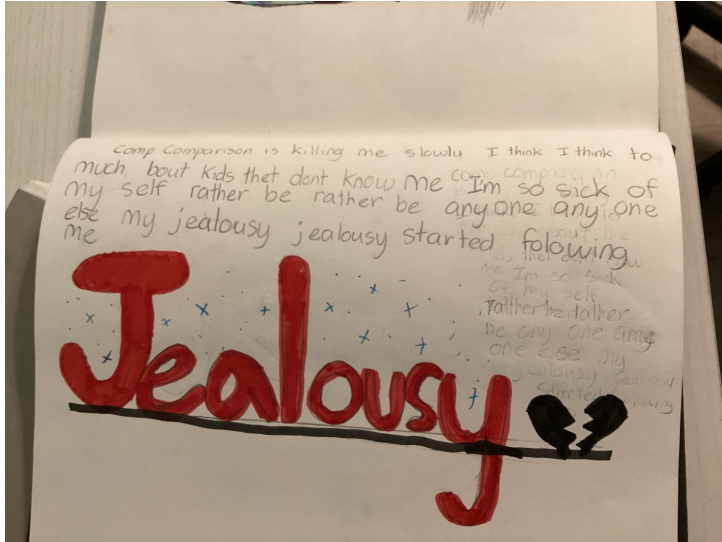 Comp Comparison is killing me slowly I think I think to
much bout kids thet dont know me Im so sick of
my self rather be rather be any one any one
else my jealousy jealousy started folowing
me
comp comparison
me Im so sick
of my self
rather be rather
be any one any
one else my
jealousy jealousy
started folowing
Jealousy